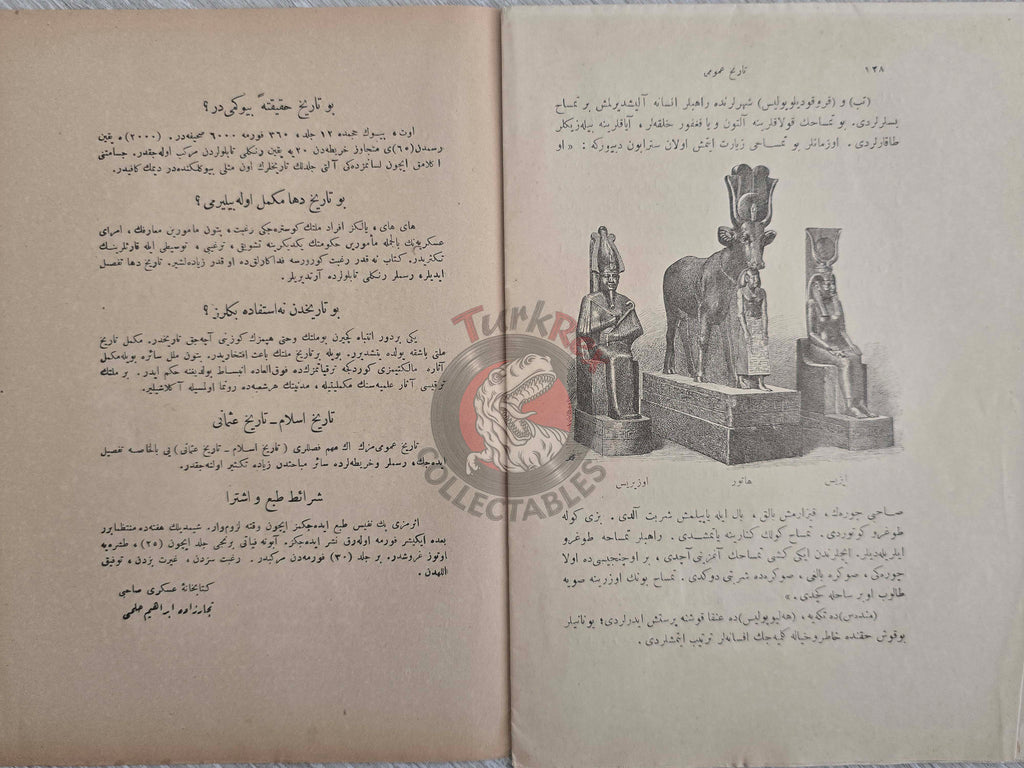 بو تاریخ حقیقتهً بیوکمی در؟
اون، بیوك حجمده ١٢ جلد، ٣٦٠ فورمه ٦٠٠٠ صحیفه‌در. (٢٠٠٠) ه یقین
رسمدن (٦٠)ی متجاوز خریطه‌دن ٢٠ یه یقین رنکلی تابلولردن مرکب اوله‌جقدر. جسامتنی
اکلامق ایچون لسانمزده‌کی آلتی جلدلك تاریخلرك اون مثلی بیوکلکنده‌در دیمك کافیدر.
بو تاریخ دها مکمل اوله‌بیلیرمی؟
های های، یالکز افراد ملتك کوستره‌جکی رغبت، بتون مأمورین معارفك، امرای
عسکریه‌نك بالجمله مأمورین حکومتك یکدیکرینه تشویقی، ترغیبی، توسیطی ایله قارئلرینك
تکثریدر. کتاب نه قدر رغبت کورورسه فداکارلق‌ده او قدر زیاده‌لشیر. تاریخ دها تفصیل
ایدیلر، رسملر رنکلی تابلولرده آرتدیریلر.
بو تاریخدن نه‌استفاده بکلرز؟
یکی بردور انتباه کچیرن بوملتك وحتی هپمزك کوزینی آچه‌جق تاریخدر. مکمل تاریخ
ملتی باشقه یولده یتشدیرر. بویله برتاریخ ملتك باعث افتخاریدر. بتون ملل سائره بویله‌مکمل
آثاره مالکتیمزی کوردکجه ترقیاتمزك‌ده فوق‌العاده انبساط بولدیغنه حکم ایدر. بر ملتك
ترقیسی آثار علمیه‌سنك مکملیتیله، مدنیتك هرشعبه‌ده رونما اولمسیله آکلاشیلیر.
تاریخ اسلام ـ تاریخ عثمانی
تاریخ عمومی‌مزك اك مهم فصللری (تاریخ اسلام ـ تاریخ عثمانی) یی بالخاصه تفصیل
ایده‌جك، رسملر وخریطه‌لرده سائر مباحثدن زیاده تکثیر اولنه‌جقدر.
شرائط طبع و اشترا
اثرمزی پك نفیس طبع ایده‌جکمز ایچون وقته لزوم‌وار. شیمدیلك هفته‌ده منتظماً برر
بعده ایکیشر فورمه اوله‌رق نشر ایده‌جکز. آبونه فیاتی برنجی جلد ایچون (٢٥)، طشره‌یه
اوتوز غروشدر. بر جلد (٣٠) فورمه‌دن مرکبدر. رغبت سزدن، غیرت بزدن، توفیق
اللهدن.
کتابخانهٔ عسکری صاحبی
تجارزاده ابراهیم حلمی
١٢٨
تاریخ عمومی
(تب) و (قروقودیلوپولیس) شهرلرنده راهبلر افسانه آلیشدیرلمش بر تمساح
بسلرلردی. بو تمساحك قولاقلرینه آلتون ویا فغفور خلقه‌لر، آیاقلرینه بیله‌زیکلر
طاقارلردی. اوزمانلر بو تمساحی زیارت ایتمش اولان سترابون دییورکه: « او
ایزیس
هاتور
اوزیریس
صاحبی چورەك، قیزارمش بالق، بال ایله یاپیلمش شربت آلدی. بزی کوله
طوغرو کوتوردی. تمساح کولك کنارینه یاتمشدی. راهبلر تمساحه طوغرو
ایلریله‌دیلر. ایچلرندن ایکی کشی تمساحك آغزینی آچدی، بر اوچنجیسی‌ده اولا
چوره‌کی، صوکره بالغی، صوکره‌ده شربتی دوکدی. تمساح بونك اوزرینه صویه
طالوب اوبر ساحله کچدی. »
(منده‌س)ده تکه‌یه، (هه‌لیوپولیس)ده عنقا قوشنه پرستش ایدرلردی؛ یونانیلر
بوقوش حقنده خاطر وخیاله کلمیه‌جك افسانه‌لر ترتیب ایتمشلردی.
TURKREX
COLLECTABLES